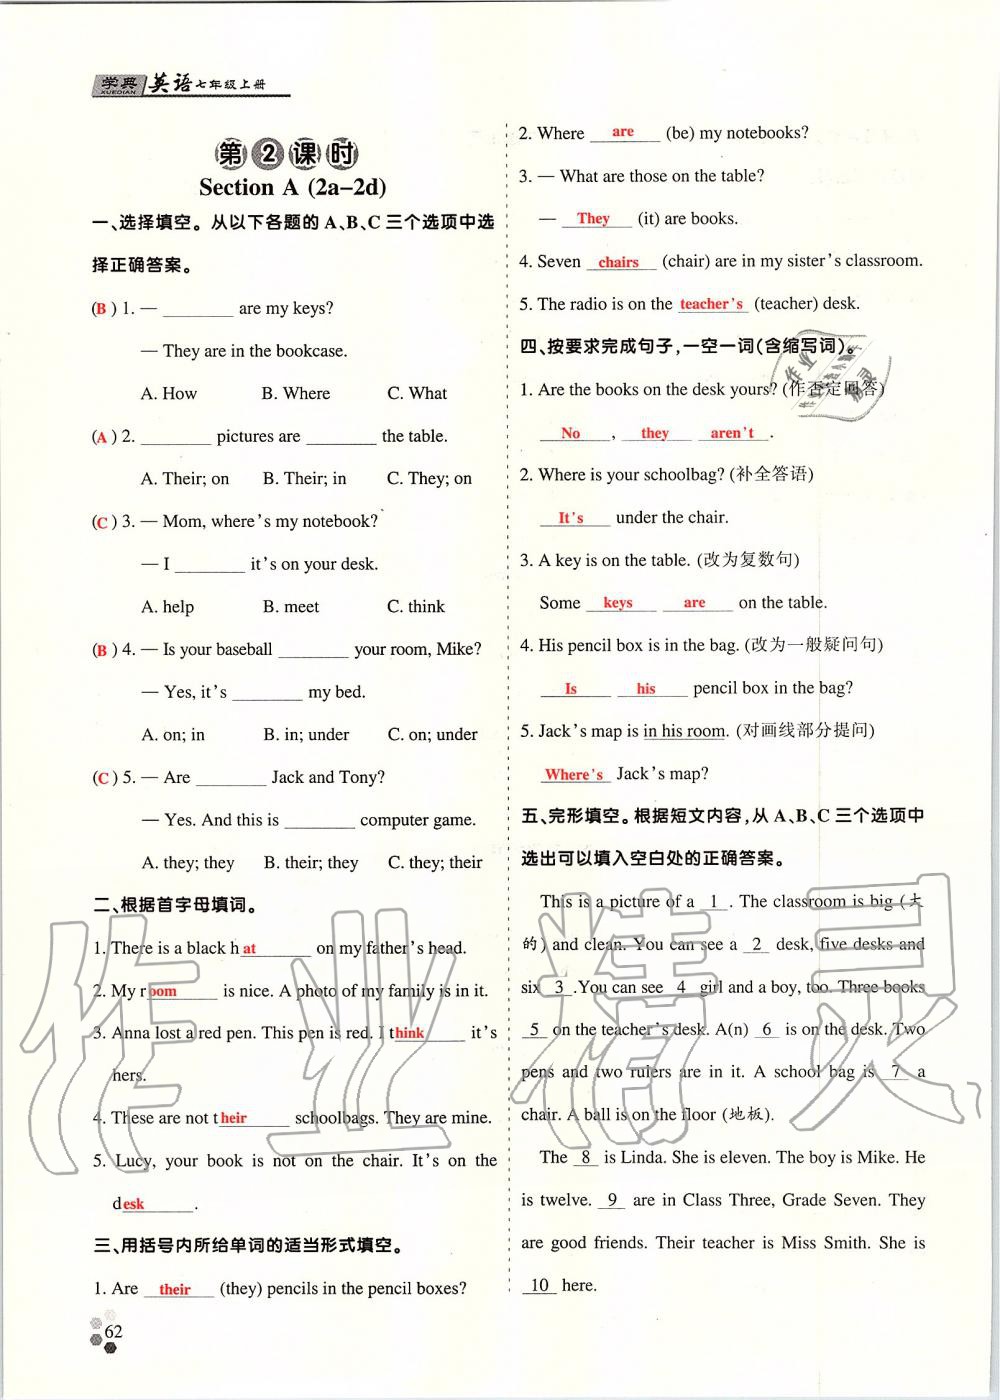 学典
XUEDIAN
英语七年级上册
第2课时
Section A (2a-2d)
一、选择填空。从以下各题的 A、B、C 三个选项中选
择正确答案。
( B ) 1. — ________ are my keys?
— They are in the bookcase.
A. How B. Where C. What
( A ) 2. ________ pictures are ________ the table.
A. Their; on B. Their; in C. They; on
( C ) 3. — Mom, where's my notebook?
— I ________ it's on your desk.
A. help B. meet C. think
( B ) 4. — Is your baseball ________ your room, Mike?
— Yes, it's ________ my bed.
A. on; in B. in; under C. on; under
( C ) 5. — Are ________ Jack and Tony?
— Yes. And this is ________ computer game.
A. they; they B. their; they C. they; their
二、根据首字母填词。
1. There is a black hat on my father's head.
2. My room is nice. A photo of my family is in it.
3. Anna lost a red pen. This pen is red. I think it's
hers.
4. These are not their schoolbags. They are mine.
5. Lucy, your book is not on the chair. It's on the
desk.
三、用括号内所给单词的适当形式填空。
1. Are their (they) pencils in the pencil boxes?
62
2. Where are (be) my notebooks?
3. — What are those on the table?
— They (it) are books.
4. Seven chairs (chair) are in my sister's classroom.
5. The radio is on the teacher's (teacher) desk.
四、按要求完成句子，一空一词(含缩写词)。
1. Are the books on the desk yours? (作否定回答)
No , they aren't .
2. Where is your schoolbag? (补全答语)
It's under the chair.
3. A key is on the table. (改为复数句)
Some keys are on the table.
4. His pencil box is in the bag. (改为一般疑问句)
Is his pencil box in the bag?
5. Jack's map is in his room. (对画线部分提问)
Where's Jack's map?
五、完形填空。根据短文内容，从 A、B、C 三个选项中
选出可以填入空白处的正确答案。
This is a picture of a 1 . The classroom is big (大
的) and clean. You can see a 2 desk, five desks and
six 3 .You can see 4 girl and a boy, too. Three books
5 on the teacher's desk. A(n) 6 is on the desk. Two
pens and two rulers are in it. A school bag is 7 a
chair. A ball is on the floor (地板).
The 8 is Linda. She is eleven. The boy is Mike. He
is twelve. 9 are in Class Three, Grade Seven. They
are good friends. Their teacher is Miss Smith. She is
10 here.
作业精灵